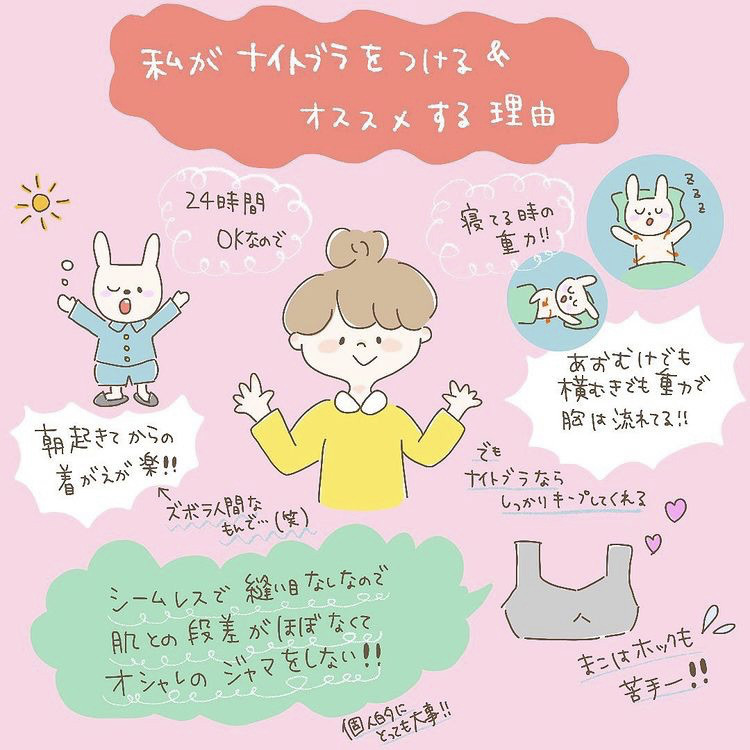 私がナイトブラをつける&
オススメする理由
24時間
OKなので
寝てる時の
重力!!
zzz
あおむけでも
横むきでも重力で
胸は流れてる!!
朝起きてからの
着がえが楽!!
ズボラ人間な
もんで…(笑)
でも
ナイトブラなら
しっかりキープしてくれる
シームレスで縫い目なしなので
肌との段差がほぼなくて
オシャレのジャマをしない!!
個人的に
とっても大事!!
まこはホックも
苦手ー!!